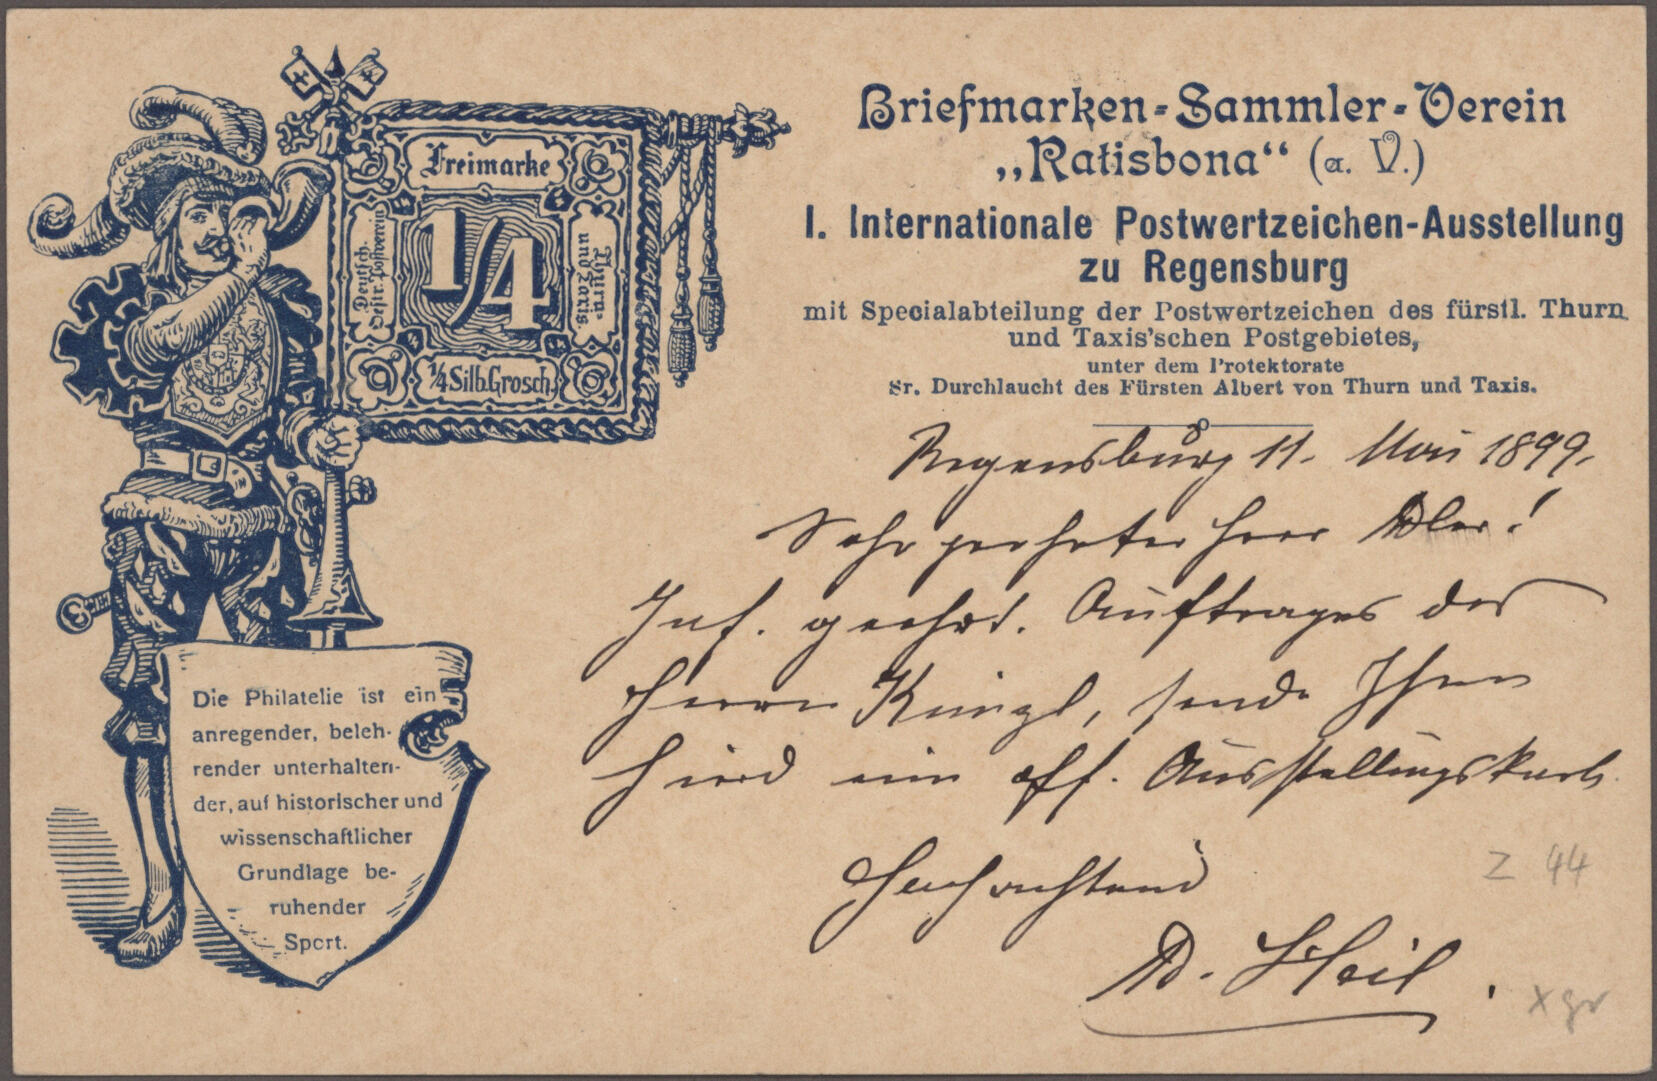 Briefmarken-Sammler-Verein
„Ratisbona“ (a. V.)
I. Internationale Postwertzeichen-Ausstellung
zu Regensburg
mit Specialabteilung der Postwertzeichen des fürstl. Thurn
und Taxis'schen Postgebietes,
unter dem Protektorate
Sr. Durchlaucht des Fürsten Albert von Thurn und Taxis.
Freimarke
Deutsch-
Oestr. Postverein
1/4
Thurn
und Taxis
1/4 Silb. Grosch.
Regensburg 11. Mai 1899.
Sehr geehrter Herr
geehrt. Auftrages des
Herrn Künzl, sende Ihnen
ein off. Ausstellungskarte.
Hochachtend
Die Philatelie ist ein
anregender, beleh-
render unterhalten-
der, auf historischer und
wissenschaftlicher
Grundlage be-
ruhender
Sport.
Z 44
x gr